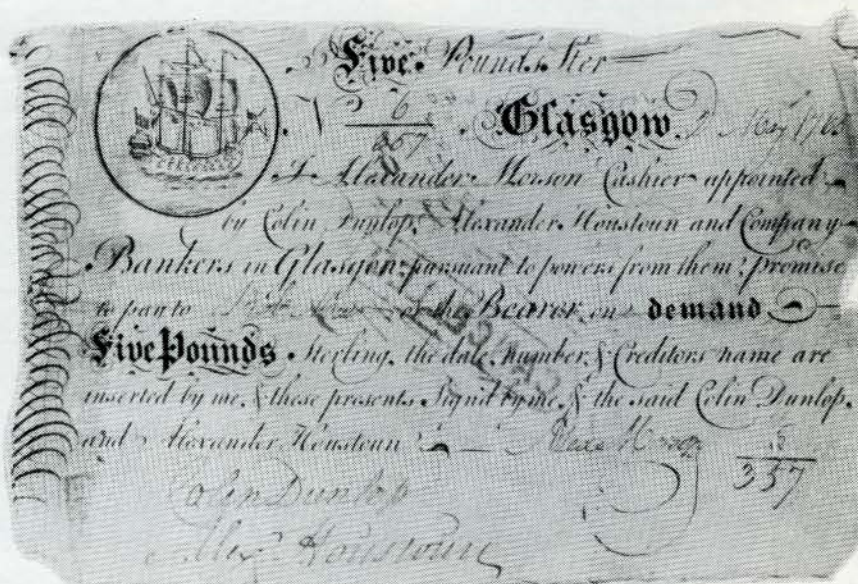 Five Pounds Ster
6
357 Glasgow 2 May 1763
I Alexander Morson Cashier appointed
by Colin Dunlop, Alexander Houstoun and Company
Bankers in Glasgow pursuant to powers from them, promise
to pay to or the Bearer on demand
Five Pounds Sterling, the date, number, & Creditors name are
inserted by me, & these presents Sign'd by me, & the said Colin Dunlop,
and Alexander Houstoun
357
Colin Dunlop
Alexr Houstoun